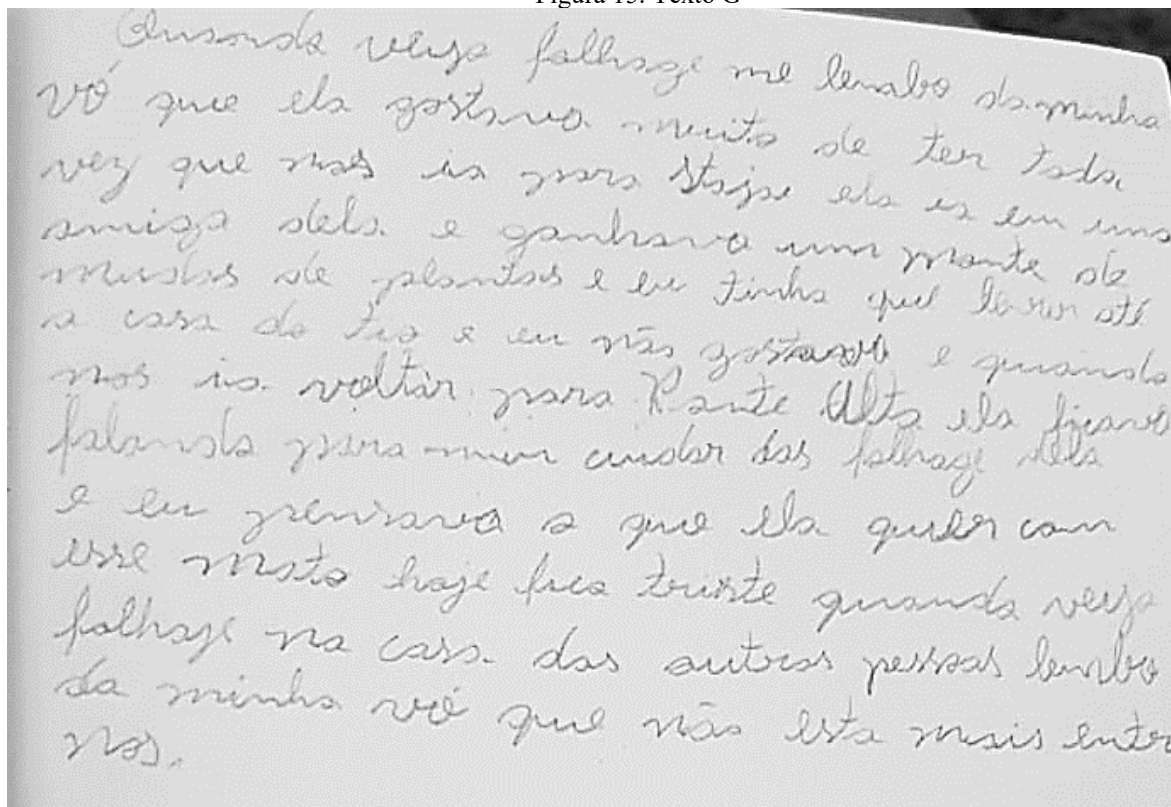 Figura 13: Texto G
Quando vejo folhage me lembo da minha
vó que ela gostava muito de ter toda
vez que nos ia para Itaja ela ia em uma
amiga dela e ganhava um monte de
mudas de plantas e eu tinha que levar até
a casa do tio e eu não gostava e quando
nos ia voltar para Ponte Alta ela ficava
falando para mim cuidar das folhage dela
e eu pensava o que ela quer com
esse mato hoje fico triste quando vejo
folhaje na casa das outras pessoas lembo
da minha vó que não esta mais entr
nos.